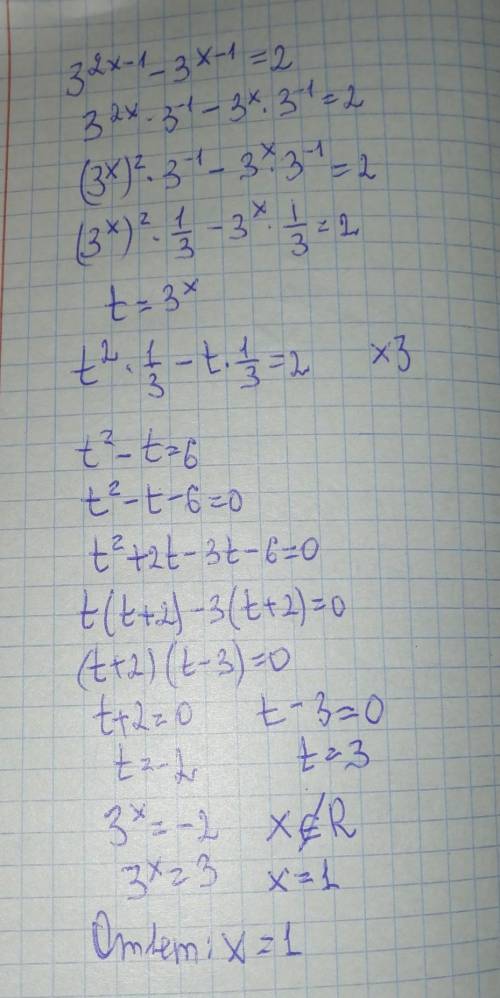 3^{2x-1} - 3^{x-1} = 2
3^{2x} · 3^{-1} - 3^x · 3^{-1} = 2
(3^x)^2 · 3^{-1} - 3^x · 3^{-1} = 2
(3^x)^2 · 1/3 - 3^x · 1/3 = 2
t = 3^x
t^2 · 1/3 - t · 1/3 = 2 ×3
t^2 - t = 6
t^2 - t - 6 = 0
t^2 + 2t - 3t - 6 = 0
t(t+2) - 3(t+2) = 0
(t+2)(t-3) = 0
t+2=0 t-3=0
t=-2 t=3
3^x = -2 x∉R
3^x = 3 x=1
Ответ: x = 1